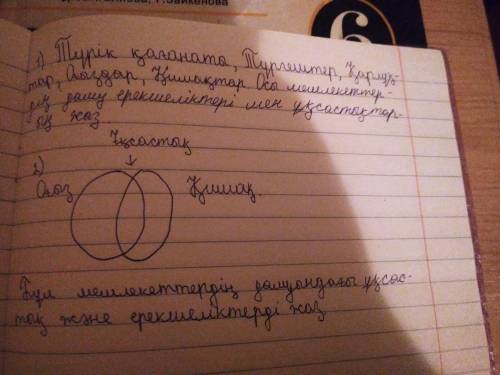 Г. Зайкенова
6
1) Түрік қағанаты, Түргештер, Қарлұқ-
тар, Оғыздар, Қимақтар Осы мемлекеттер-
дің даму ерекшеліктері мен ұқсастықтар-
ын жаз
Ұқсастық
2)
Оғыз Қимақ.
Бұл мемлекеттердің дамуындағы ұқсас-
тық және ерекшеліктерді жаз